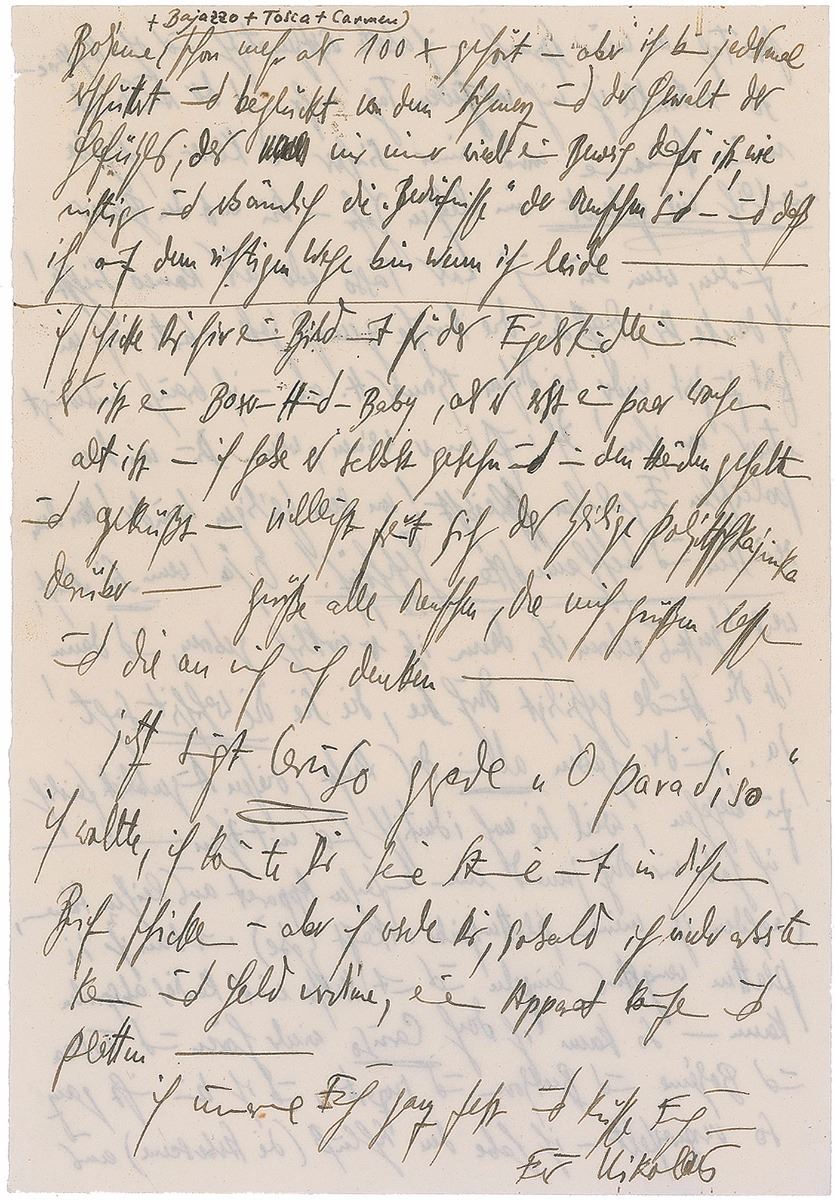 + Bajazzo + Tosca + Carmen)
Bohème (schon mehr als 100 x gehört – aber ich bin jedesmal
erschüttert und beglückt von dem Schmerz und der Gewalt der
Gefühle, der mir immer wieder ein Beweis dafür ist, wie
nichtig und erbärmlich die „Bedürfnisse" der Menschen sind – und daß
ich auf dem richtigen Wege bin wenn ich leide —
ich schicke Dir hier ein Bild mit für das —
Er ist ein Boxer-Hund-Baby, als er erst ein paar Wochen
alt ist – ich habe es selbst gesehn und in den Händen gehalten
und geküßt – vielleicht freut sich der heilige
darüber — grüße alle Menschen, die mich grüßen lassen
und die an mich denken —
jetzt singt Caruso gerade „O paradiso"
ich wollte, ich könnte Dir seine Stimme mit in diesem
Brief schicken – aber ich werde Dir, sobald ich wieder arbeiten
kann und Geld verdiene, einen Apparat kaufen und
Platten —
ich umarme Euch ganz fest und küsse Euch —
Euer Nikolaus